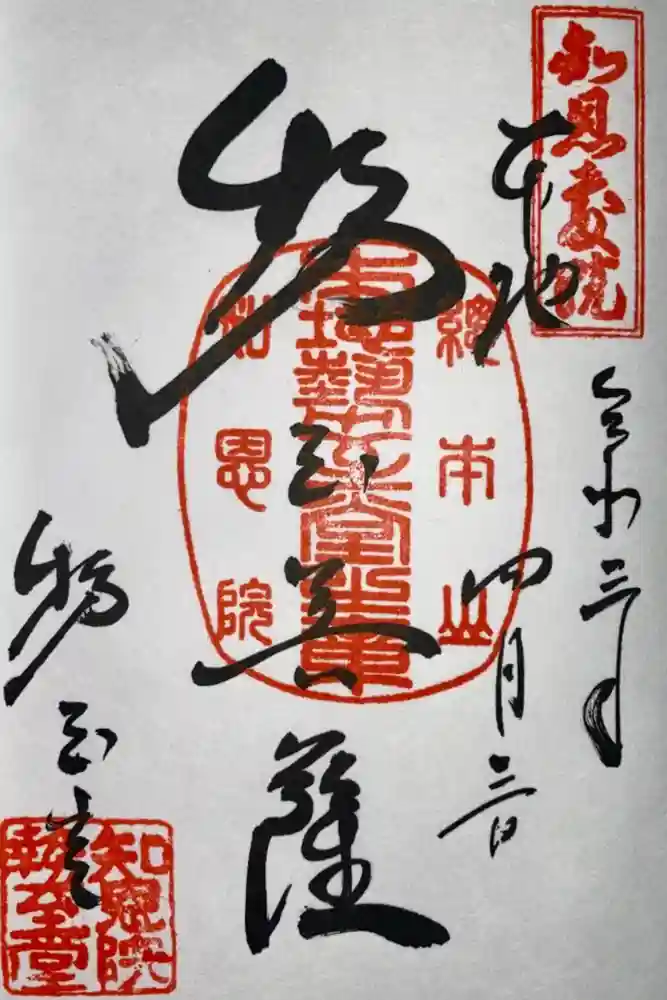 知恩教院
本地
令和三年
四月三日
總本山
勢至菩薩
知恩院
勢至堂
知恩院
勢至堂